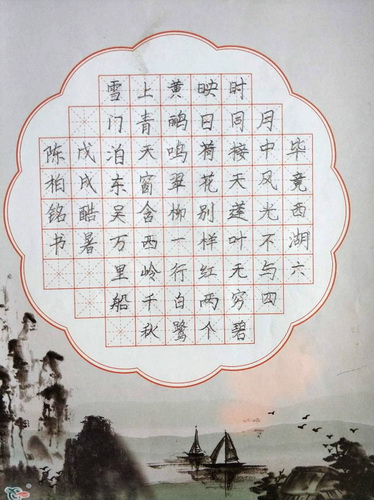 毕竟西湖六
月中风光不与四
时同接天莲叶无穷碧
映日荷花别样红两个
黄鹂鸣翠柳一行白鹭
上青天窗含西岭千秋
雪门泊东吴万里船
戊戌酷暑
陈柏铭书